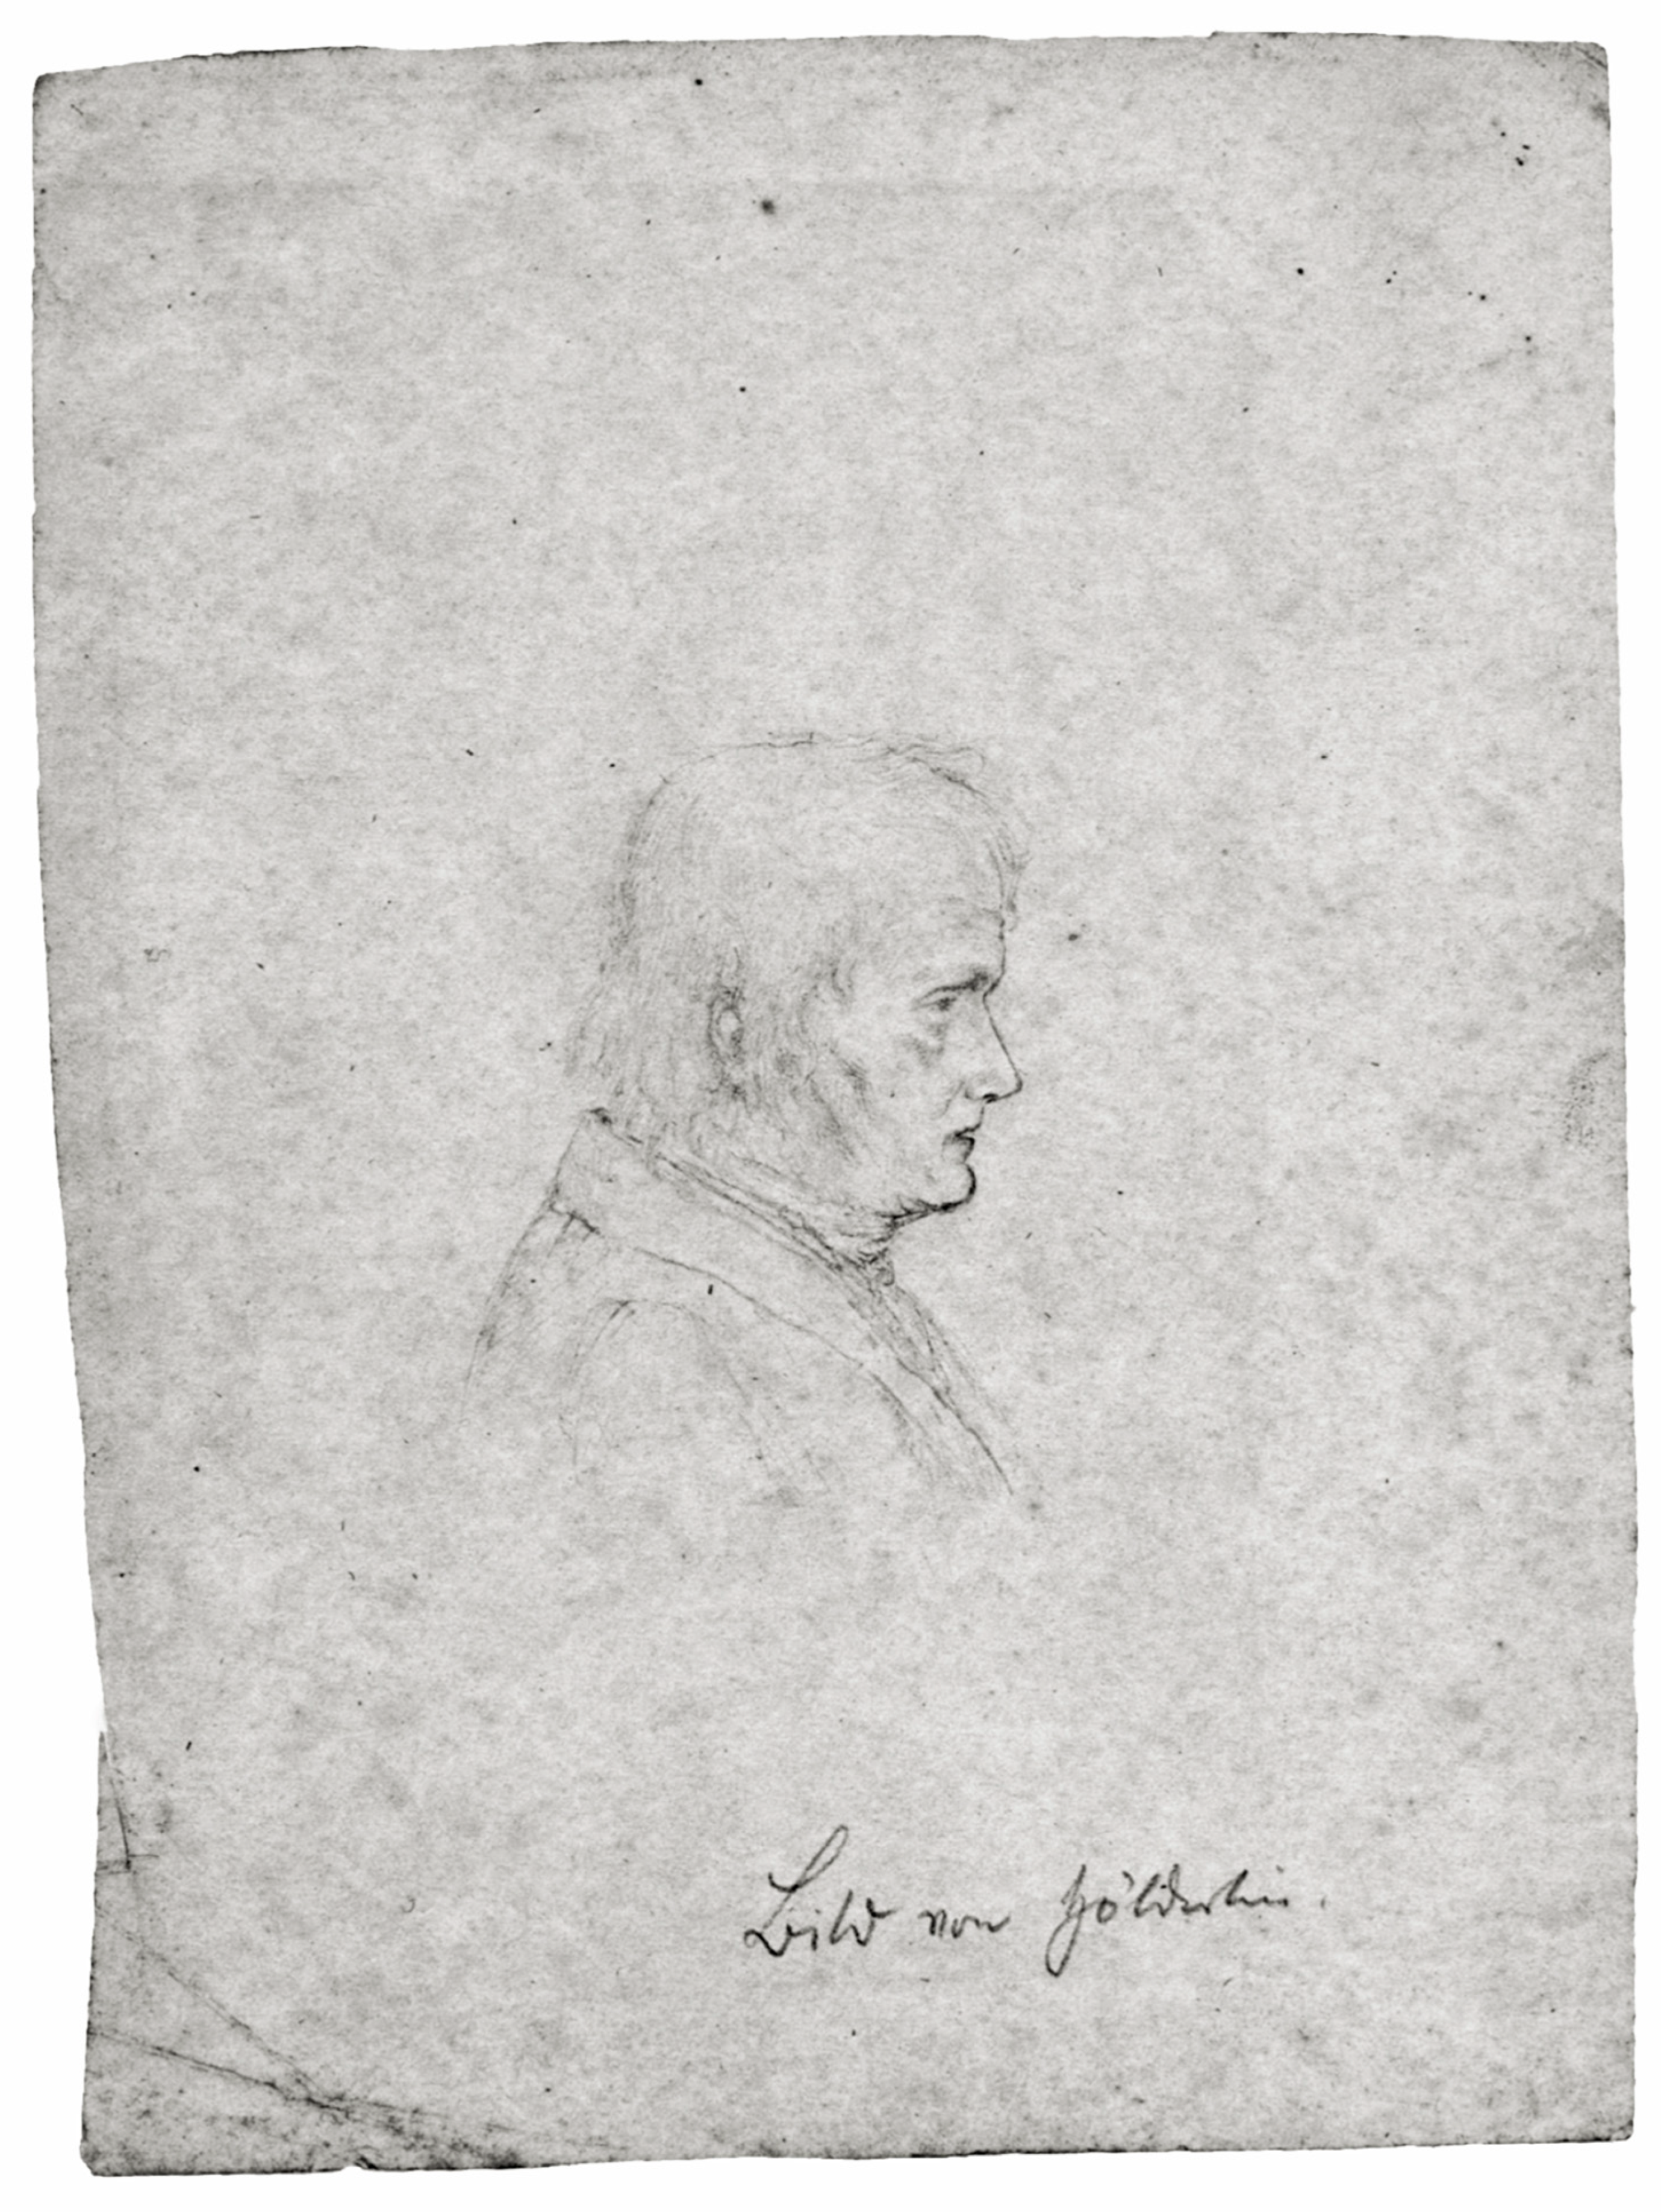 Bild von Hölderlin.